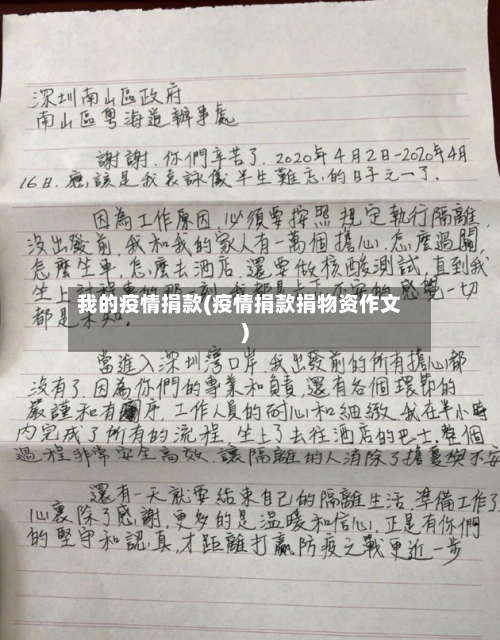 深圳南山區政府
南山區粵海道辦事處
謝謝,你們辛苦了.2020年4月2日-2020年4月
16日.應該是我袁詠儀半生難忘的日子之一了.
因為工作原因,必須要按照規定執行隔離
沒出發前,我和我的家人有一萬個擔心,怎麼過關
怎麼坐車,怎麼去酒店,還要做核酸測試,直到我
坐上
我的疫情捐款(疫情捐款捐物资作文
)
感覺一切
都是未知.
當進入深圳灣口岸,我出發前的所有擔心都
沒有了.因為你們的專業和負責,還有各個環節的
嚴謹和有序.工作人員的耐心和細緻,我在半小時
內完成了所有的流程,坐上了去往酒店的巴士,整個
過程非常安全高效.讓隔離的人消除了擔憂與不安
還有一天就要結束自己的隔離生活,準備工作了
心裏除了感謝,更多的是溫暖和信心.正是有你們
的堅守和認真,才距離打贏防疫之戰更近一步